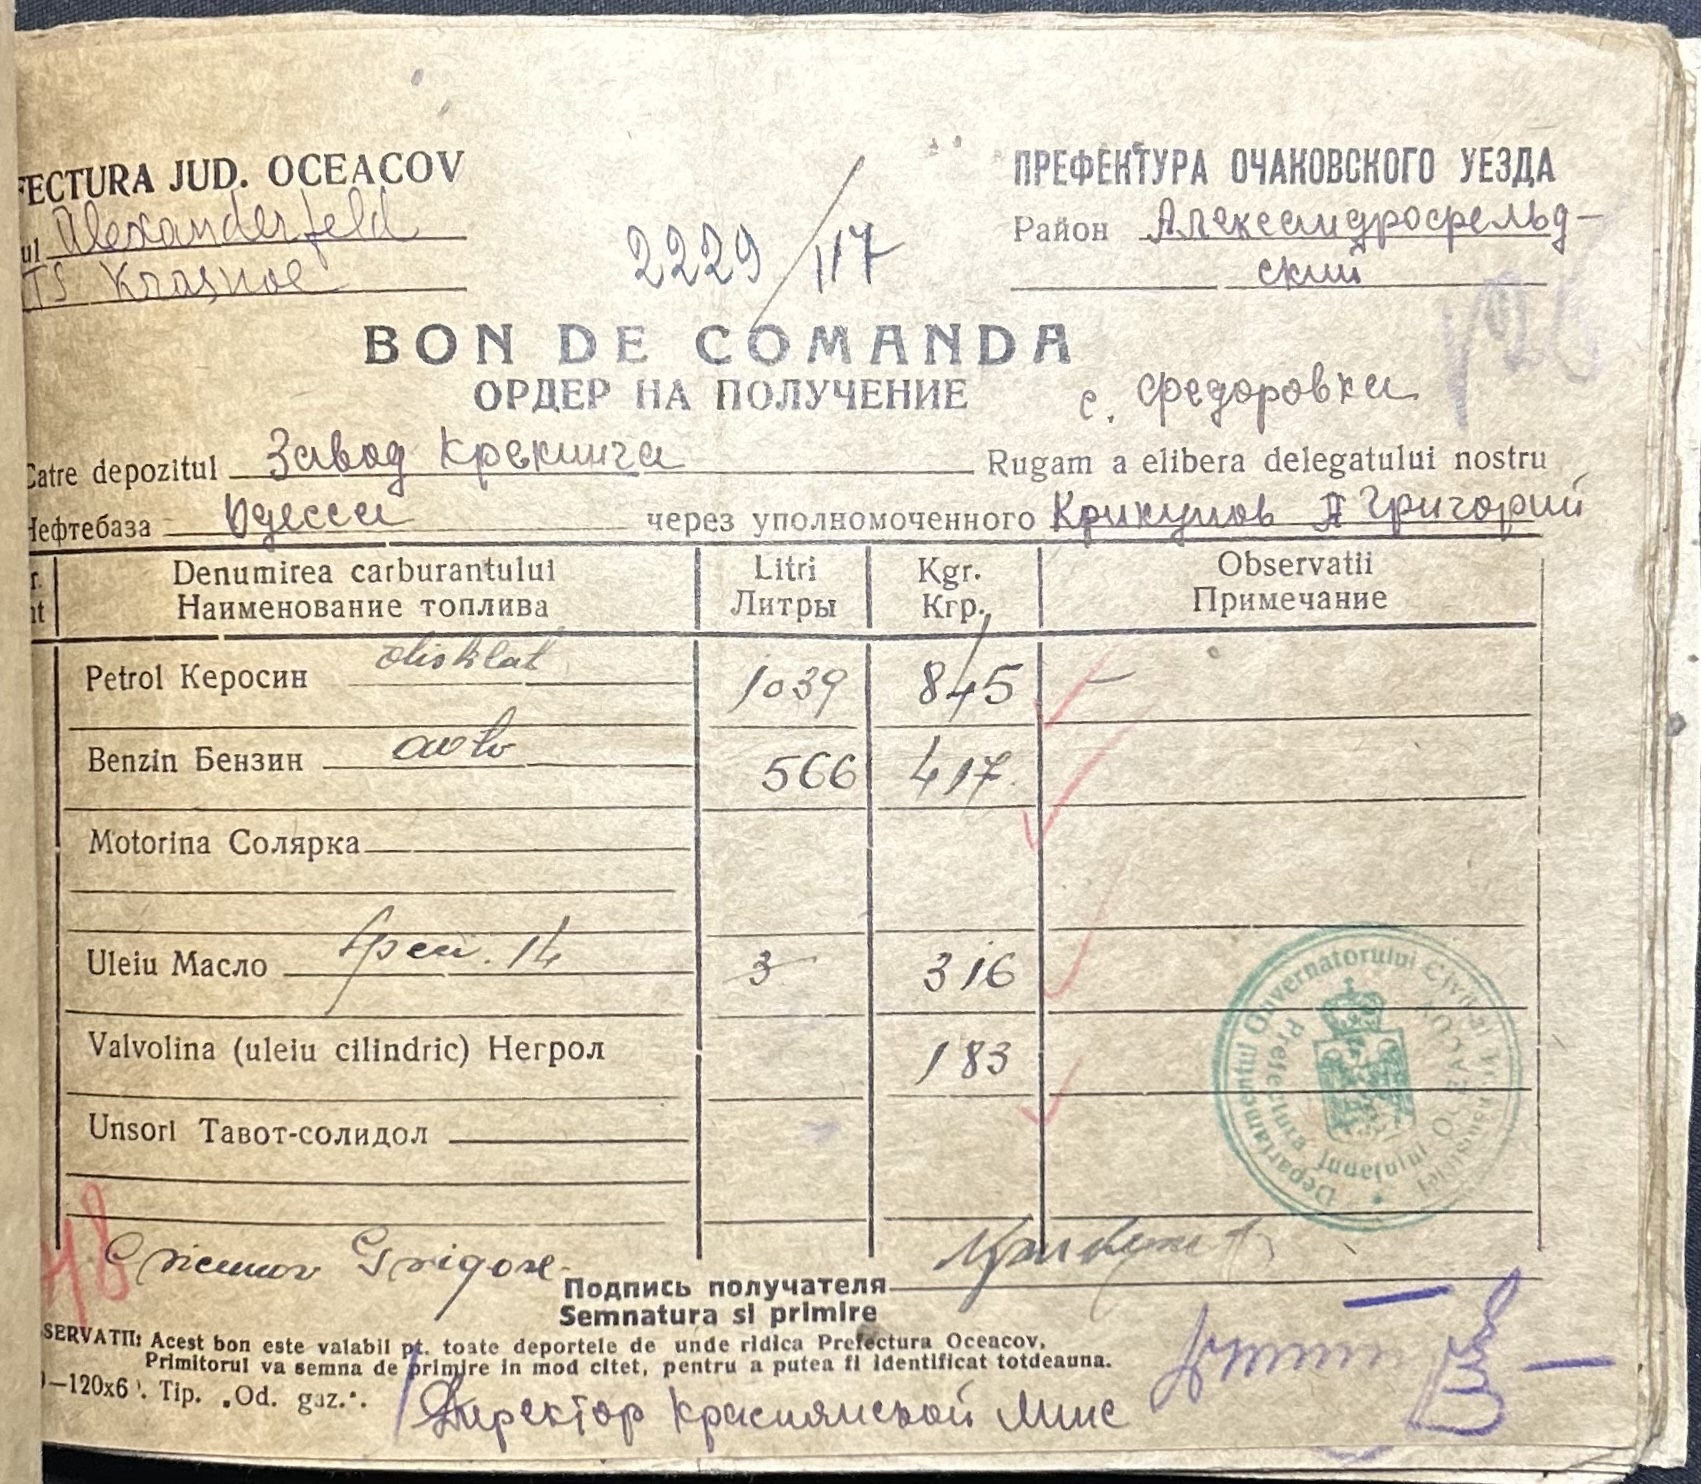 FECTURA JUD. OCEACOV
ПРЕФЕКТУРА ОЧАКОВСКОГО УЕЗДА
ul Alexanderfeld
Район Александрофельд-
ский
TS Krasnoe
2229/117
BON DE COMANDA
ОРДЕР НА ПОЛУЧЕНИЕ
с. Федоровка
Catre depozitul Завод Крекинга Rugam a elibera delegatului nostru
Нефтебаза Одесса через уполномоченного Крикунов Григорий
r. Denumirea carburantului Litri Kgr. Observatii
nt Наименование топлива Литры Кгр. Примечание
Petrol Керосин 1039 845 –
Benzin Бензин auto 566 417
Motorina Солярка
Uleiu Масло 14 3 316
Valvolina (uleiu cilindric) Негрол 183
Unsori Тавот-солидол
Departamentul Guvernatorului Civil al Transnistriei
Prefectura Judeţului OCEACOV
48
Grigore
Подпись получателя
Semnatura si primire
SERVATII: Acest bon este valabil pt. toate deportele de unde ridica Prefectura Oceacov,
Primitorul va semna de primire in mod citet, pentru a putea fi identificat totdeauna.
–120x6 . Tip. „Od. gaz.“.
Директор Краснянской Мтс